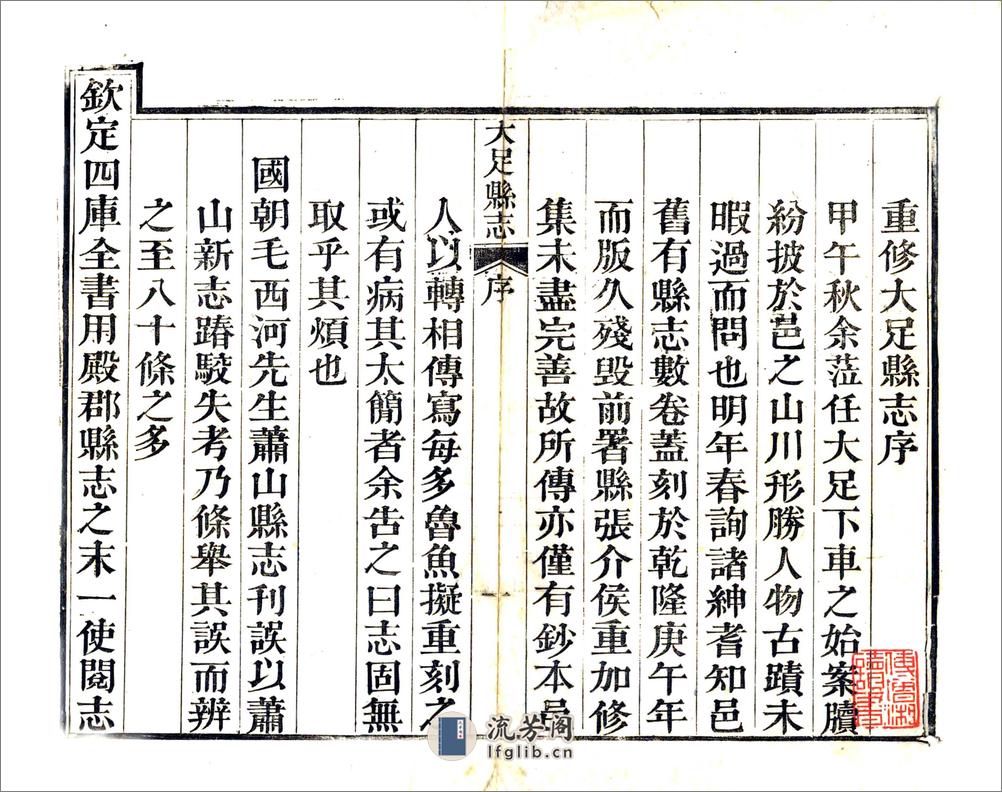 重修大足縣志序
甲午秋余蒞任大足下車之始案牘
紛披於邑之山川形勝人物古蹟未
暇過而問也明年春詢諸紳耆知邑
舊有縣志數卷蓋刻於乾隆庚午年
而版久殘毀前署縣張介侯重加修
集未盡完善故所傳亦僅有鈔本邑
大足縣志 序 一
人以轉相傳寫每多魯魚擬重刻之
或有病其太簡者余告之曰志固無
取乎其煩也
國朝毛西河先生蕭山縣志刊誤以蕭
山新志踳駮失考乃條舉其誤而辨
之至八十條之多
欽定四庫全書用殿郡縣志之末一使閱志
流芳阁
lfglib.cn